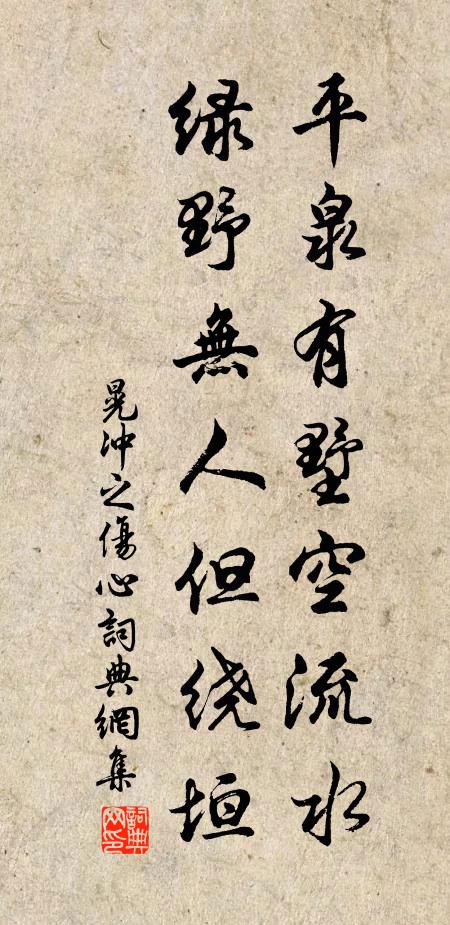 平泉有墅空流水
绿野無人但绕垣
晁冲之傷心詞典網集
詞典网印